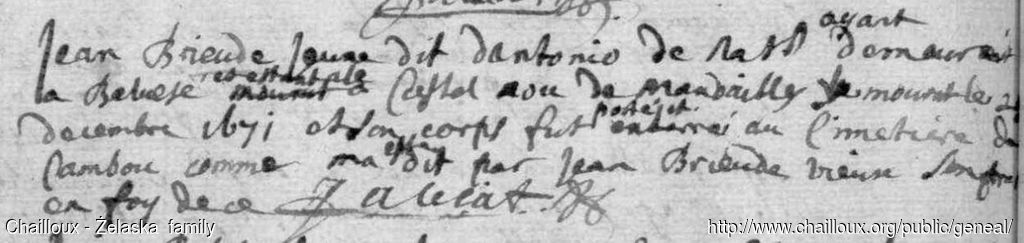 ayant
Jean Brieude Jeune dit dantonio de demeurait
la et estant
mourut a Chastel nou de Mandailles mourut le
decembre 1671 et son corps fut porté et enterré au Cimetiere de
Cambou comme ma esté dit par Jean Brieude vieux son frere
en foy de ce
Chailloux - Żelaska family
http://www.chailloux.org/public/geneal/